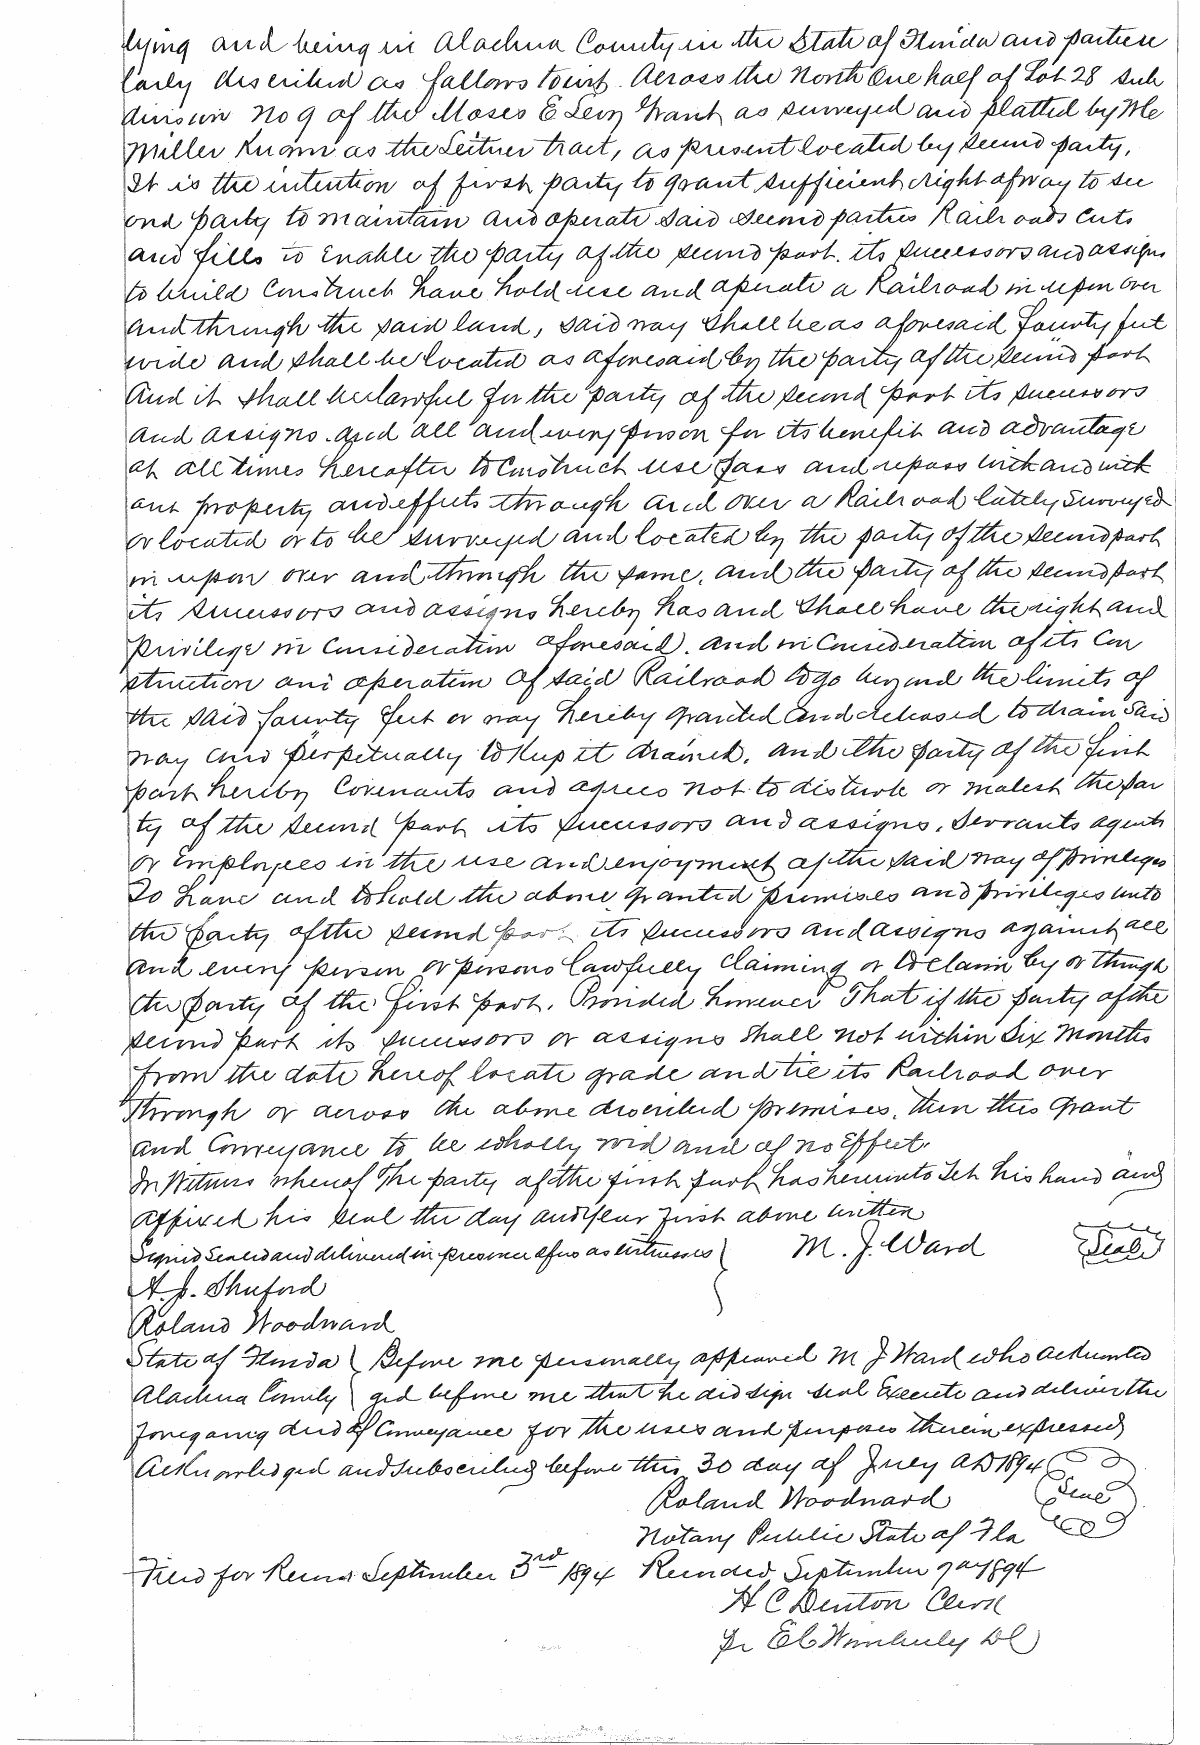 lying and being in Alachua County in the State of Florida and particu
larly described as follows towit. Across the North One half of Lot 28 sub
division No 9 of the Moses E Levy Grant as surveyed and platted by
Miller Known as the Leitner tract, as present located by second party,
It is the intention of first party to grant sufficient right of way to sec
ond party to maintain and operate said second parties Railroads cuts
and fills to Enable the party of the second part. its successors and assigns
to build Construct have hold use and operate a Railroad in upon over
and through the said land, said way shall be as aforesaid founty feet
wide and shall be located as aforesaid by the party of the second part
And it shall be lawful for the party of the second part its successors
and assigns. and all and every person for its benefit and advantage
at all times hereafter to Construct use pass and repass with and with
out property and effects through and over a Railroad lately surveyed
or located or to be surveyed and located by the party of the second part
in upon over and through the same, and the party of the second part
its successors and assigns hereby has and shall have the right and
privilege in Consideration aforesaid. and in Consideration of its Con
struction and operation of said Railroad to go beyond the limits of
the said founty feet or way hereby granted and released to drain said
way and perpetually to Keep it drained. and the party of the first
part hereby Covenants and agrees not to disturb or molest the par
ty of the second part its successors and assigns, servants agents
or Employees in the use and enjoyment of the said way of privileges
To have and to hold the above granted premises and privileges unto
the party of the second part its successors and assigns against all
and every person or persons lawfully claiming or to claim by or through
the party of the first part. Provided however That if the party of the
second part its successors or assigns shall not within Six Months
from the date hereof locate grade and tie its Railroad over
through or across the above described premises. then this grant
and Conveyance to be wholly void and of no Effect.
In Witness whereof The party of the first part has hereunto Set his hand and
affixed his seal the day and year first above written
Signed Sealed and delivered in presence of us as witnesses M. J. Ward Seal
A. J. Shuford
Roland Woodward
State of Florida Before me personally appeared M J Ward who acknowled
Alachua County ged before me that he did sign seal Execute and deliver the
foregoing deed of Conveyance for the uses and purposes therein expressed
Acknowledged and subscribed before this 30 day of July AD 1894
Roland Woodward Seal
Notary Public State of Fla
Filed for Record September 3rd 1894 Recorded September 7 1894
H C Denton Clerk
Pr E C Wimberly DC